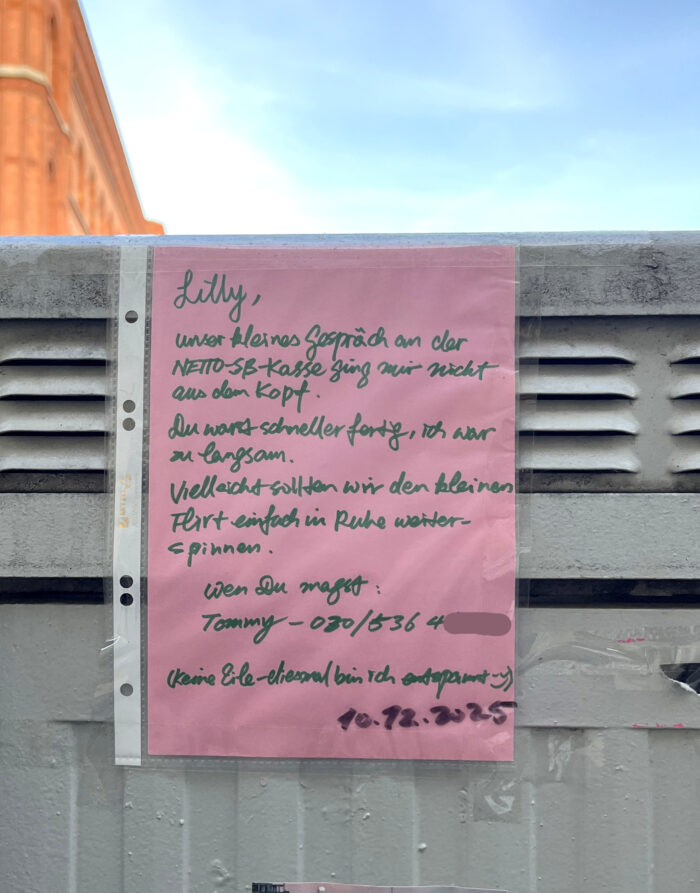 Lilly,
unser kleines Gespräch an der
NETTO-SB-Kasse ging mir nicht
aus dem Kopf.
Du warst schneller fertig, ich war
zu langsam.
Vielleicht sollten wir den kleinen
Flirt einfach in Ruhe weiter-
spinnen.
wen Du magst:
Tommy - 030/536 4
(keine Eile - diesmal bin ich entspannt :-))
10.12.2025